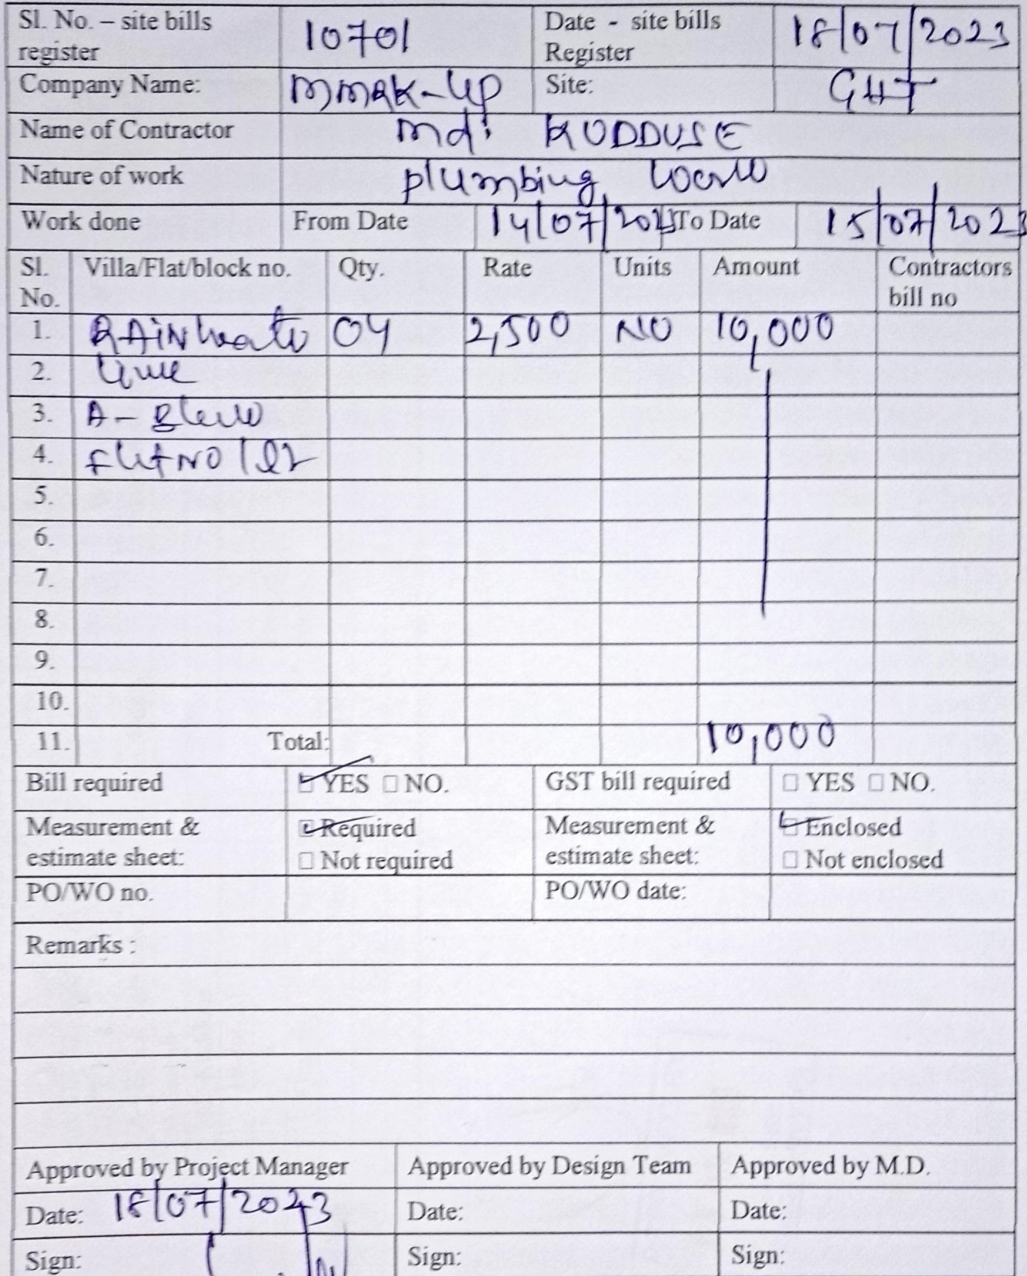 Sl. No. – site bills register 10701 Date - site bills Register 18/07/2023
Company Name: MMRK-UP Site: GHT
Name of Contractor Md: KUDDUSE
Nature of work plumbing work
Work done From Date 14/07/2023 To Date 15/07/2023
Sl. No. Villa/Flat/block no. Qty. Rate Units Amount Contractors bill no
1. RAiN 04 2,500 NO 10,000
2. line
3. A-
4. FlatNo
5.
6.
7.
8.
9.
10.
11. Total: 10,000
Bill required YES NO. GST bill required YES NO.
Measurement & estimate sheet: Required Not required Measurement & estimate sheet: Enclosed Not enclosed
PO/WO no. PO/WO date:
Remarks :
Approved by Project Manager Approved by Design Team Approved by M.D.
Date: 18/07/2023 Date: Date:
Sign: Sign: Sign: